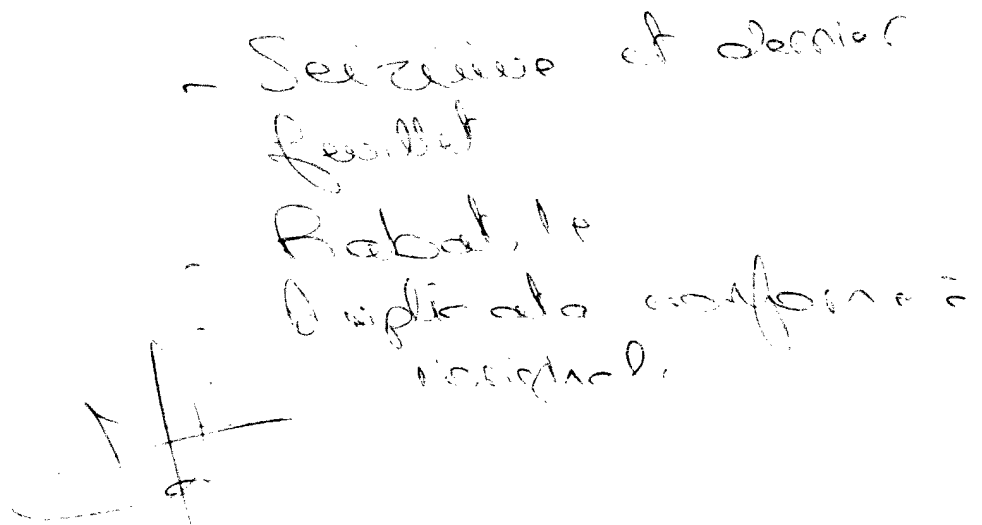 - Seizième et dernier
feuillet
- Rabat, le
- Duplicata conforme à
l'original.